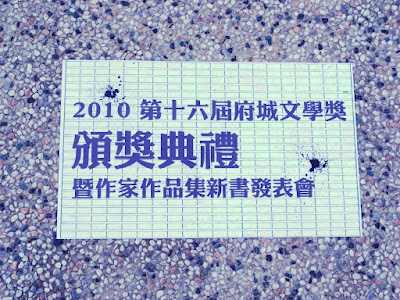 2010 第十六屆府城文學獎
頒獎典禮
暨作家作品集新書發表會